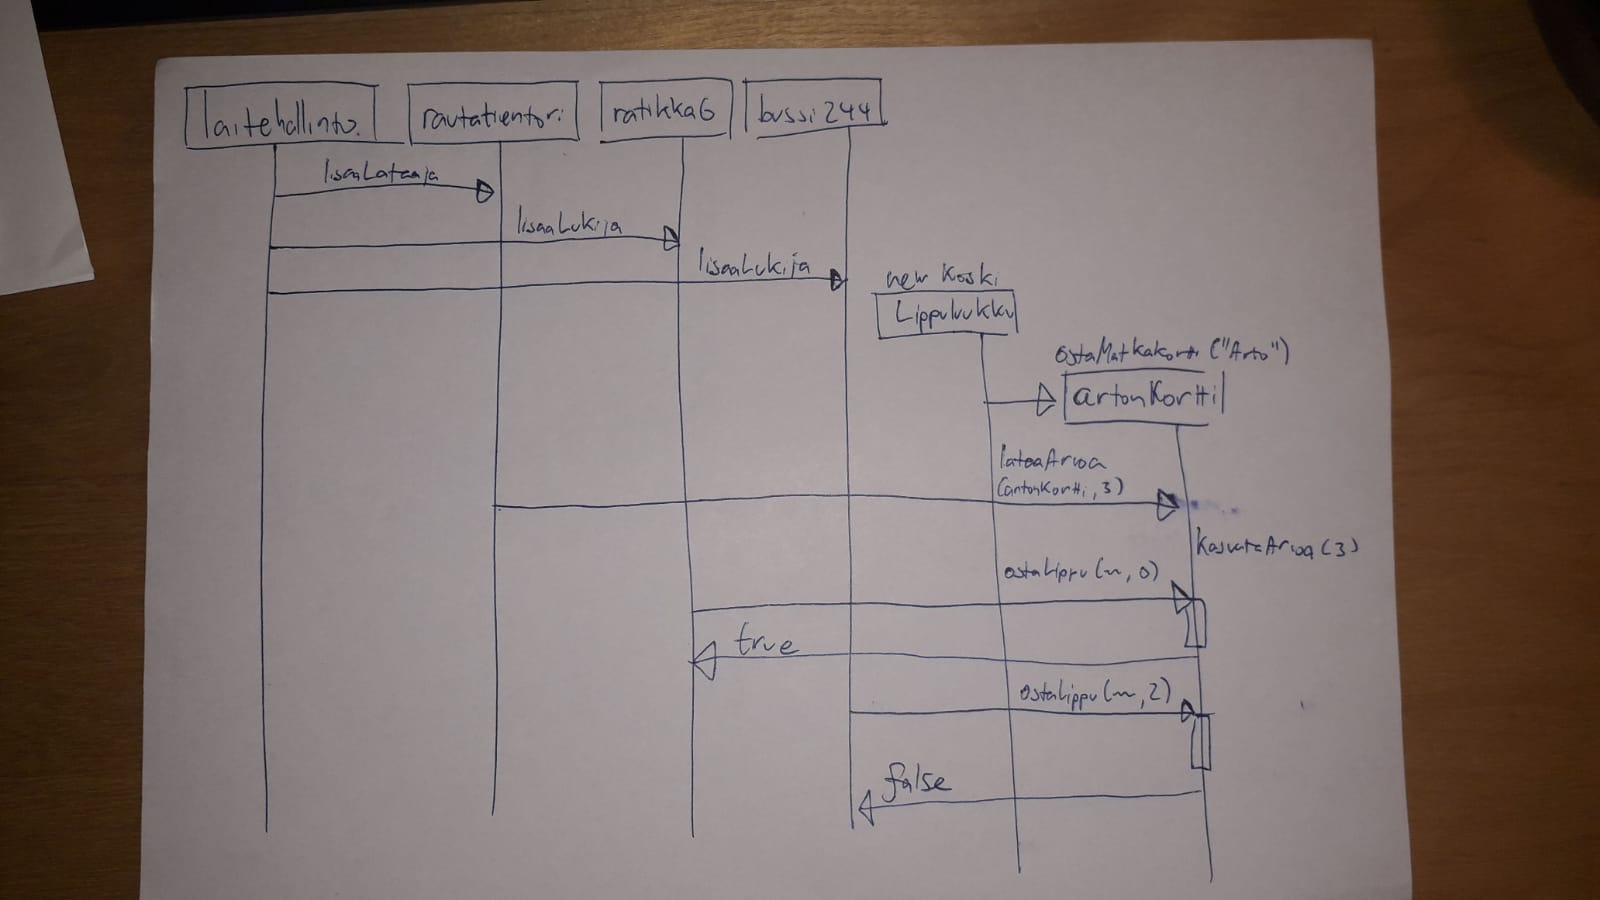 laitehallinto.
rautatientori
ratikka6
bussi244
lisaaLataaja
lisaaLukija
lisaaLukija
new Koski
Lippuluukku
ostaMatkakortti ("Arto")
artonKortti
lataaArvoa
(artonKortti, 3)
kasvataArvoa(3)
ostaLippu(~, 0)
true
ostaLippu(~, 2)
false